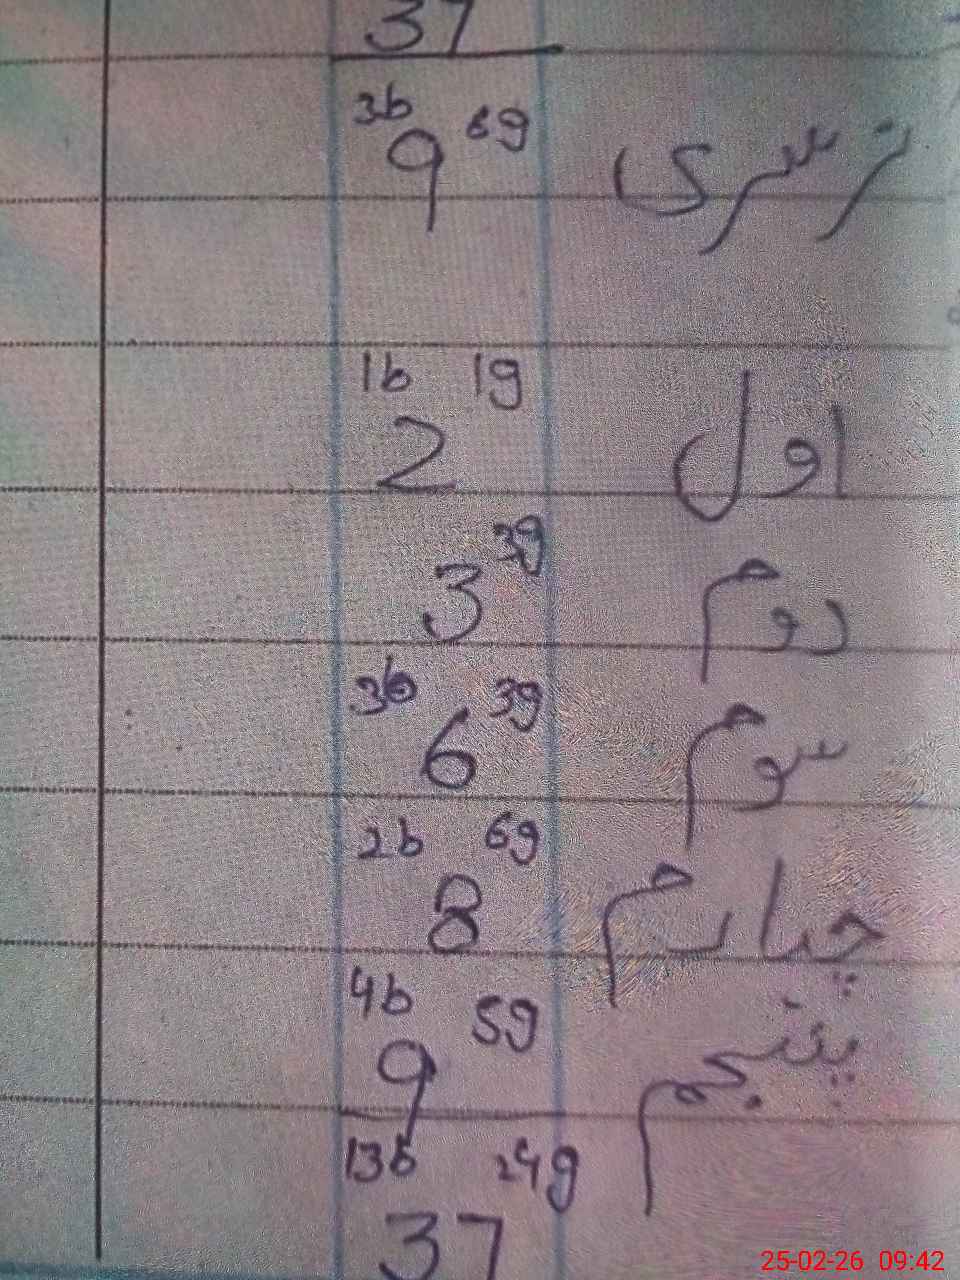 37
نرسری 3b 6g
9
اول 1b 1g
2
دوم 3g
3
سوم 3b 3g
6
چہارم 2b 6g
8
پنجم 4b 5g
9
13b 24g
37
25-02-26 09:42